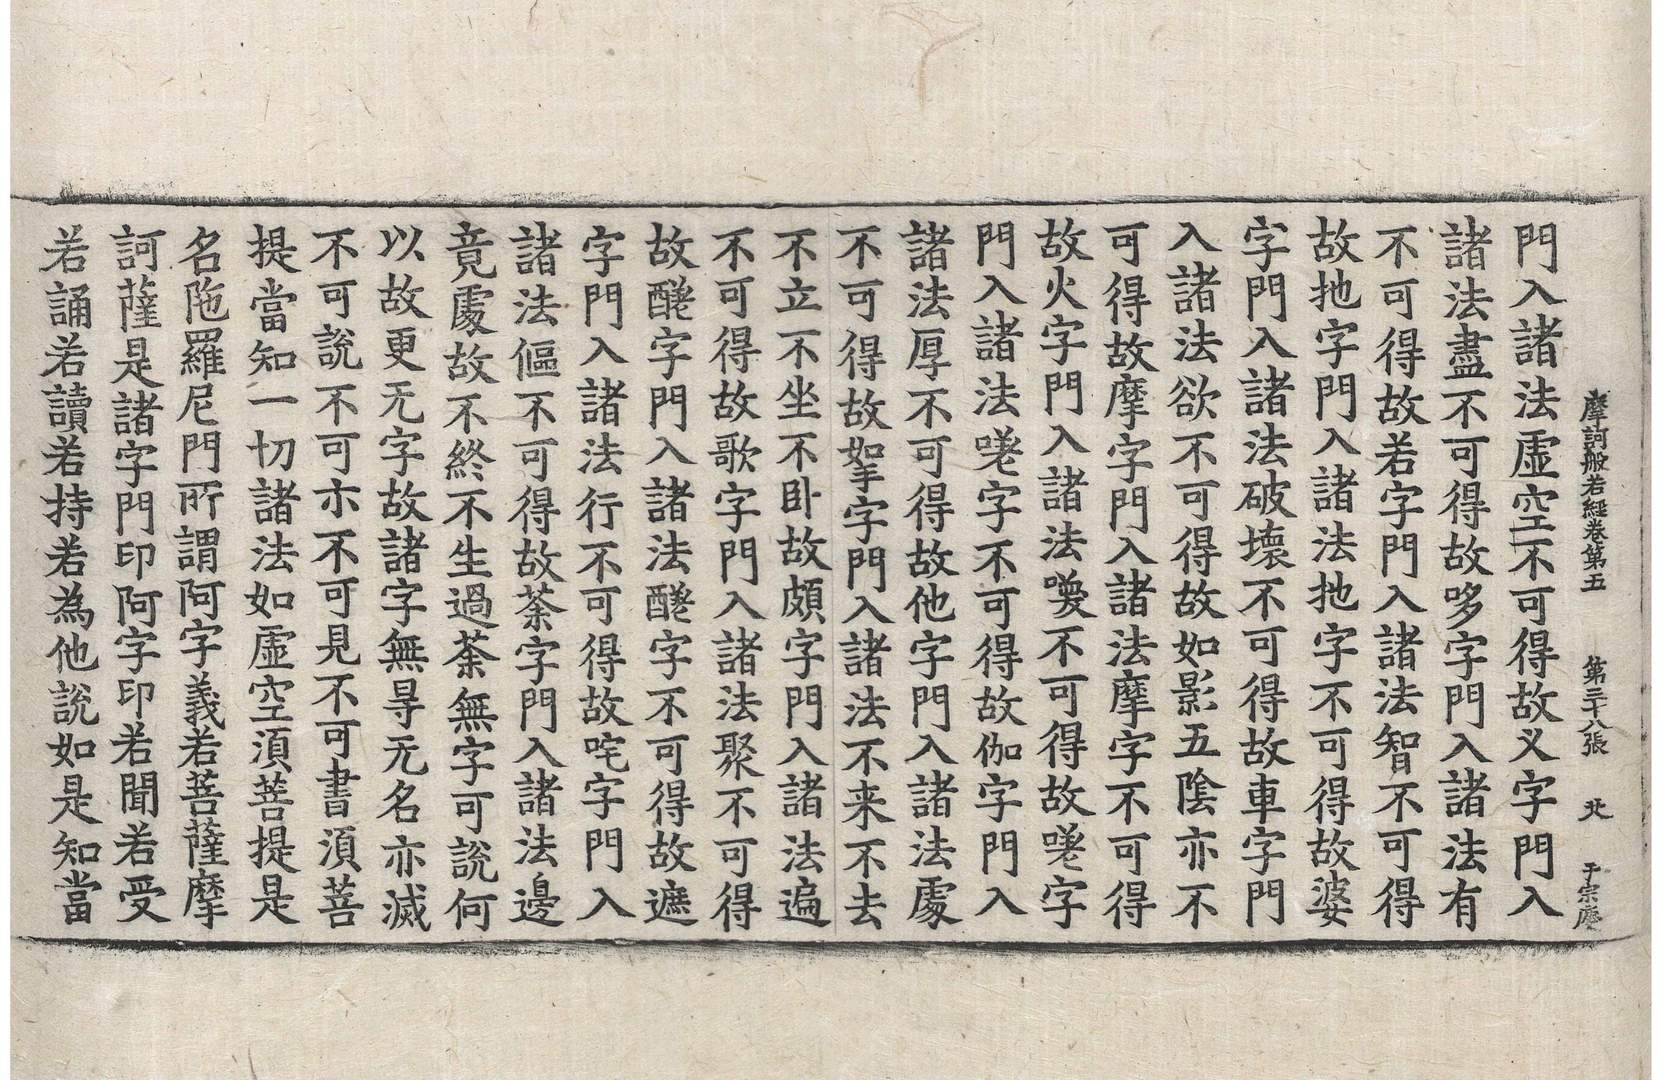 摩訶般若經卷第五 第三十八張 北 于宗應
門入諸法虛空不可得故义字門入
諸法盡不可得故哆字門入諸法有
不可得故若字門入諸法智不可得
故扡字門入諸法扡字不可得故婆
字門入諸法破壞不可得故車字門
入諸法欲不可得故如影五陰亦不
可得故摩字門入諸法摩字不可得
故火字門入諸法喚不可得故嗟字
門入諸法嗟字不可得故伽字門入
諸法厚不可得故他字門入諸法處
不可得故拏字門入諸法不来不去
不立不坐不卧故頗字門入諸法遍
不可得故歌字門入諸法聚不可得
故醝字門入諸法醝字不可得故遮
字門入諸法行不可得故咤字門入
諸法傴不可得故荼字門入諸法邊
竟處故不終不生過荼無字可說何
以故更无字故諸字無㝵无名亦滅
不可說不可示不可見不可書須菩
提當知一切諸法如虛空須菩提是
名陁羅尼門所謂阿字義若菩薩摩
訶薩是諸字門印阿字印若聞若受
若誦若讀若持若為他說如是知當